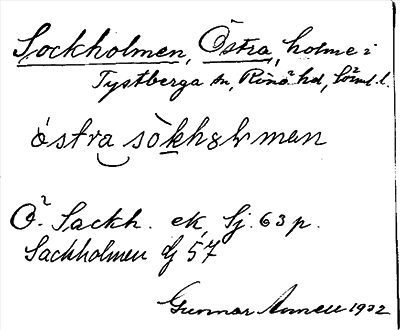 Sockholmen, Östra, holme i
Tystberga sn, Rönö hd, Söml. l.
östra sòkhɜlmen
Ö. Sackh. ek, Sj. 63 p.
Sackholmen dj 57
Gunnar Annell 1932